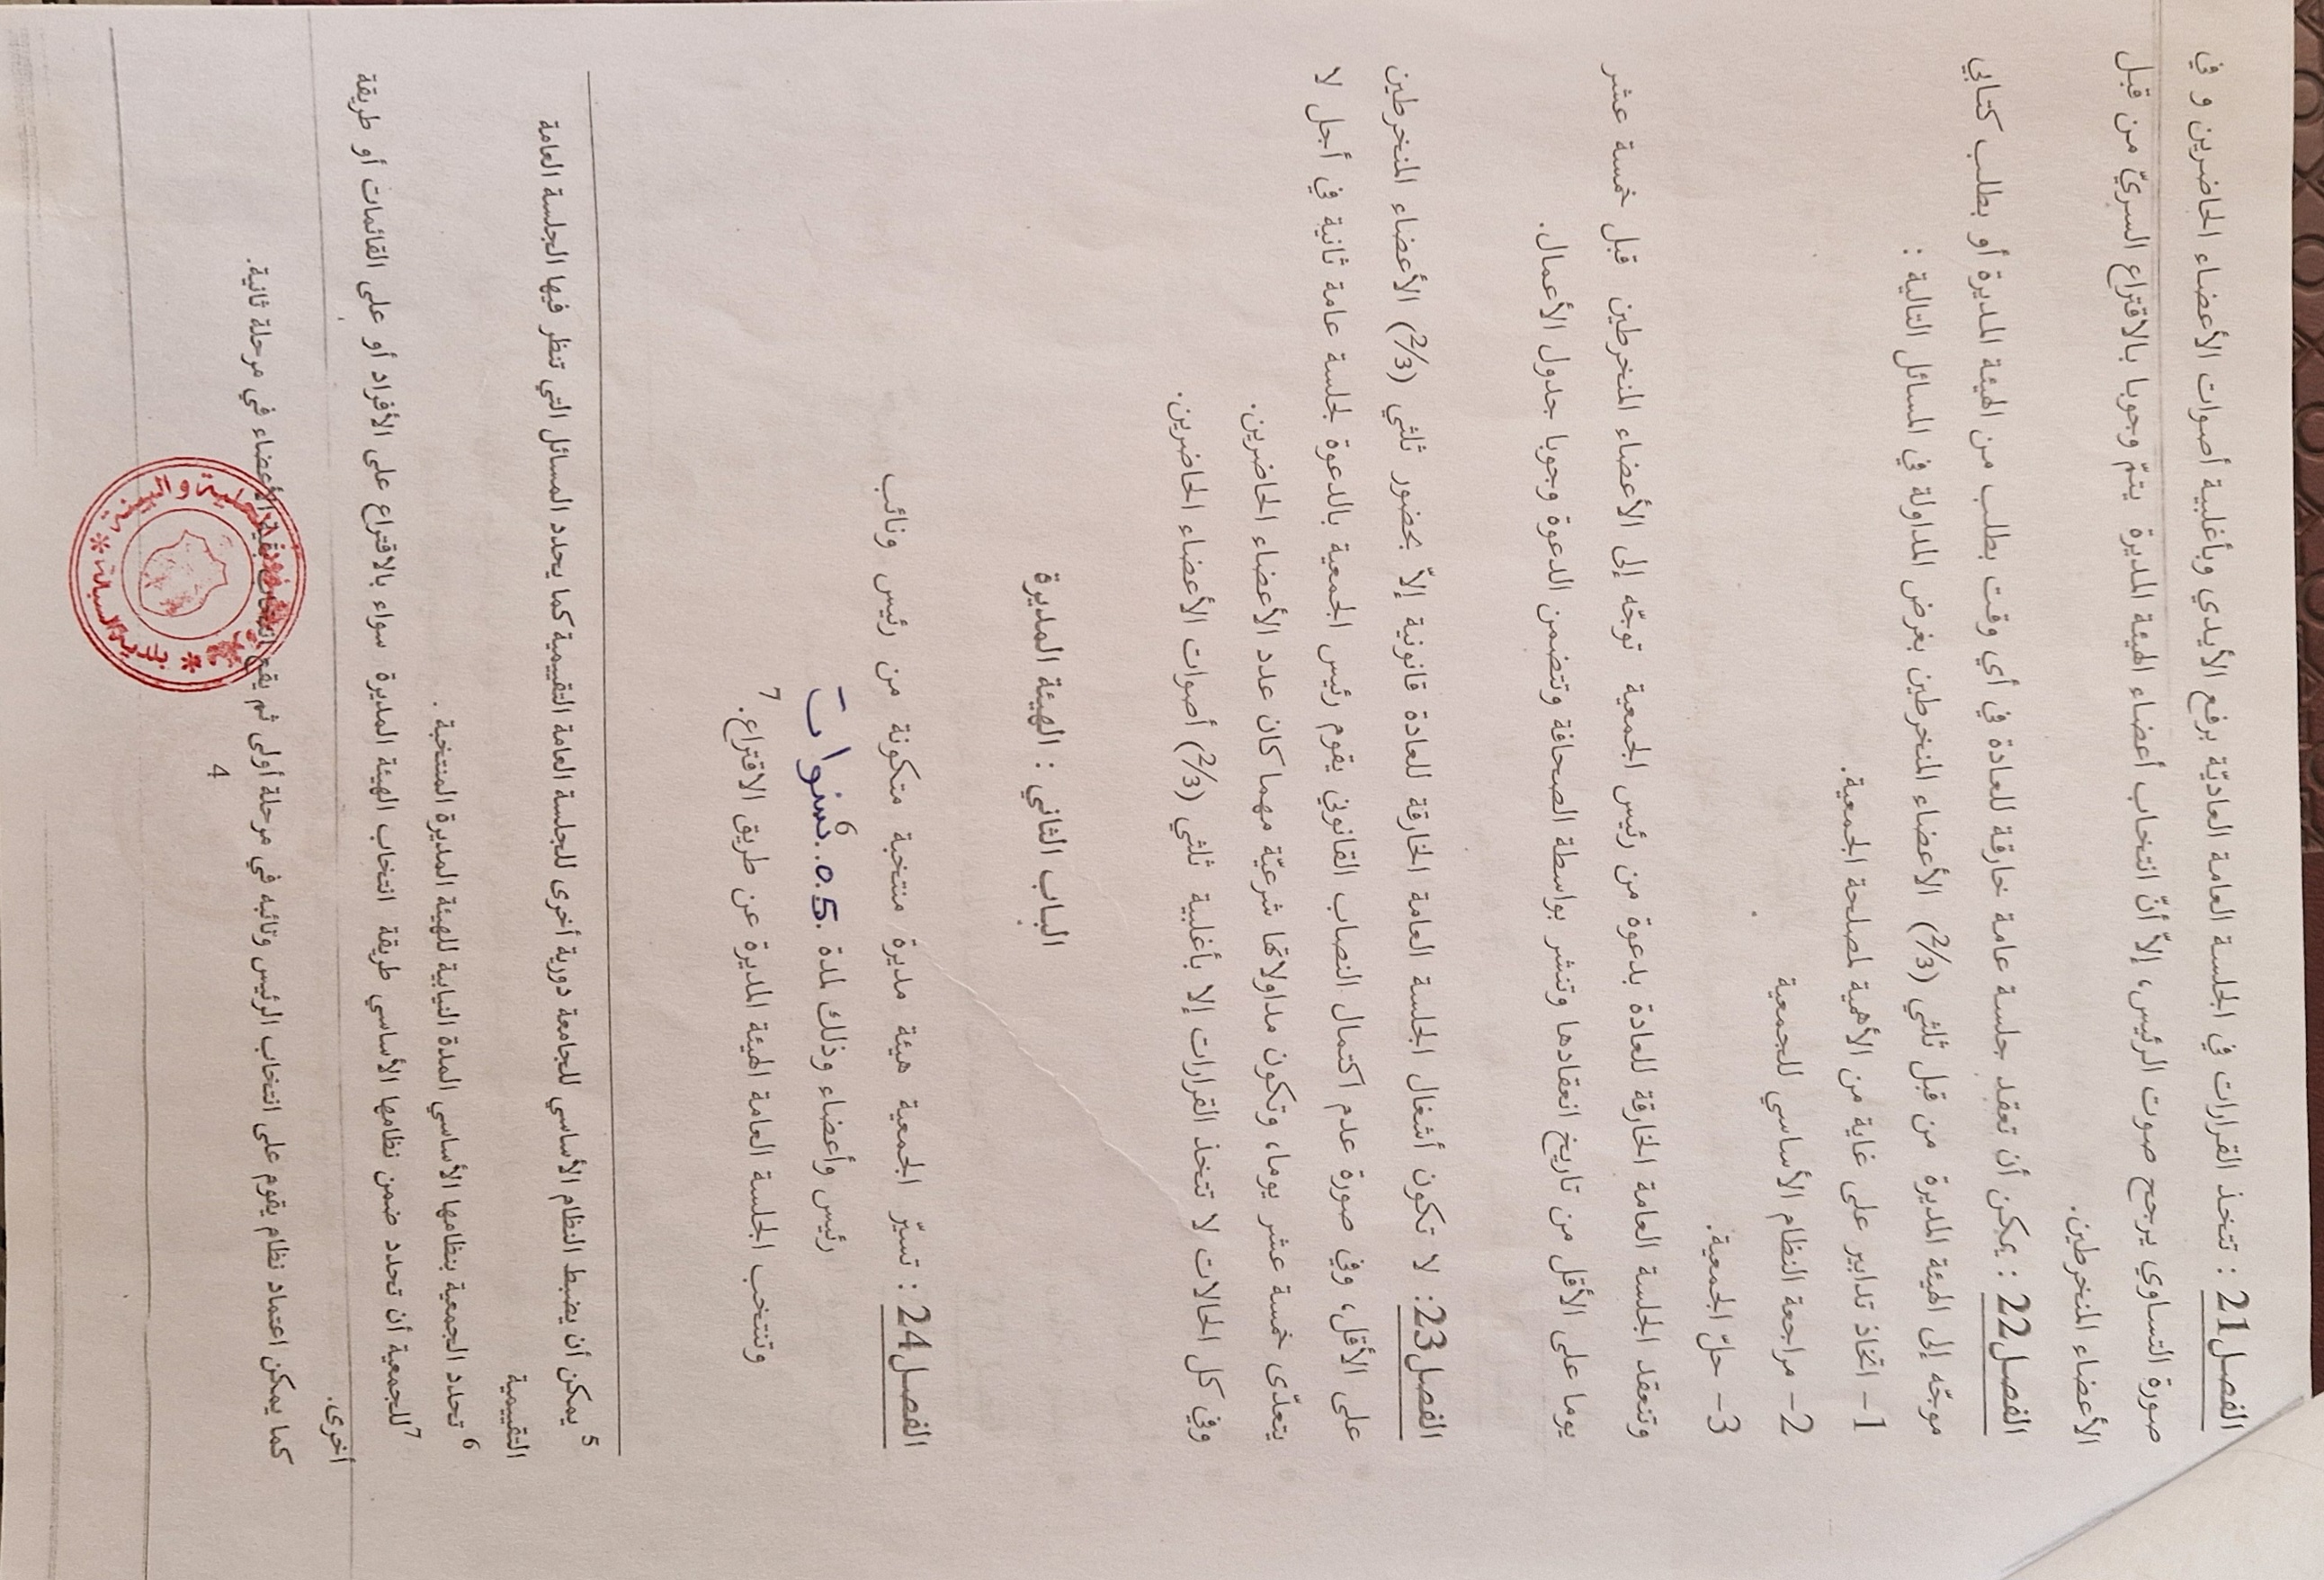 الفصل 21 : تتخذ القرارات في الجلسة العامة العاديّة برفع الأيدي وبأغلبية أصوات الأعضاء الحاضرين و في
صورة التساوي يرجح صوت الرئيس، إلاّ أنّ انتخاب أعضاء الهيئة المديرة يتمّ وجوبا بالاقتراع السريّ من قبل
الأعضاء المنخرطين.
الفصل 22 : يمكن أن تعقد جلسة عامة خارقة للعادة في أي وقت بطلب من الهيئة المديرة أو بطلب كتابي
موجّه إلى الهيئة المديرة من قبل ثلثي (2/3) الأعضاء المنخرطين بغرض المداولة في المسائل التالية :
1- اتخاذ تدابير على غاية من الأهمية لمصلحة الجمعية.
2- مراجعة النظام الأساسي للجمعية
3- حلّ الجمعية.
وتنعقد الجلسة العامة الخارقة للعادة بدعوة من رئيس الجمعية توجّه إلى الأعضاء المنخرطين قبل خمسة عشر
يوما على الأقل من تاريخ انعقادها وتنشر بواسطة الصحافة وتتضمن الدعوة وجوبا جدول الأعمال.
الفصل 23: لا تكون أشغال الجلسة العامة الخارقة للعادة قانونية إلاّ بحضور ثلثي (2/3) الأعضاء المنخرطين
على الأقل، وفي صورة عدم اكتمال النصاب القانوني يقوم رئيس الجمعية بالدعوة لجلسة عامة ثانية في أجل لا
يتعدّى خمسة عشر يوما، وتكون مداولاتها شرعيّة مهما كان عدد الأعضاء الحاضرين.
وفي كل الحالات لا تتخذ القرارات إلا بأغلبية ثلثي (2/3) أصوات الأعضاء الحاضرين.
الباب الثاني : الهيئة المديرة
الفصل 24 : تسيّر الجمعية هيئة مديرة منتخبة متكونة من رئيس ونائب
رئيس وأعضاء وذلك لمدة .5.0..سنوات 6
وتنتخب الجلسة العامة الهيئة المديرة عن طريق الاقتراع.7
5 يمكن أن يضبط النظام الأساسي للجامعة دورية أخرى للجلسة العامة التقييمية كما يحدد المسائل التي تنظر فيها الجلسة العامة
التقييمية
6 تحدد الجمعية بنظامها الأساسي المدة النيابية للهيئة المديرة المنتخبة .
7 للجمعية أن تحدد ضمن نظامها الأساسي طريقة انتخاب الهيئة المديرة سواء بالاقتراع على الأفراد أو على القائمات أو طريقة
أخرى.
كما يمكن اعتماد نظام يقوم على انتخاب الرئيس ونائبه في مرحلة أولى ثم يقع انتخاب بقية الأعضاء في مرحلة ثانية.
4
والبيئة
* بلدية السبالة *